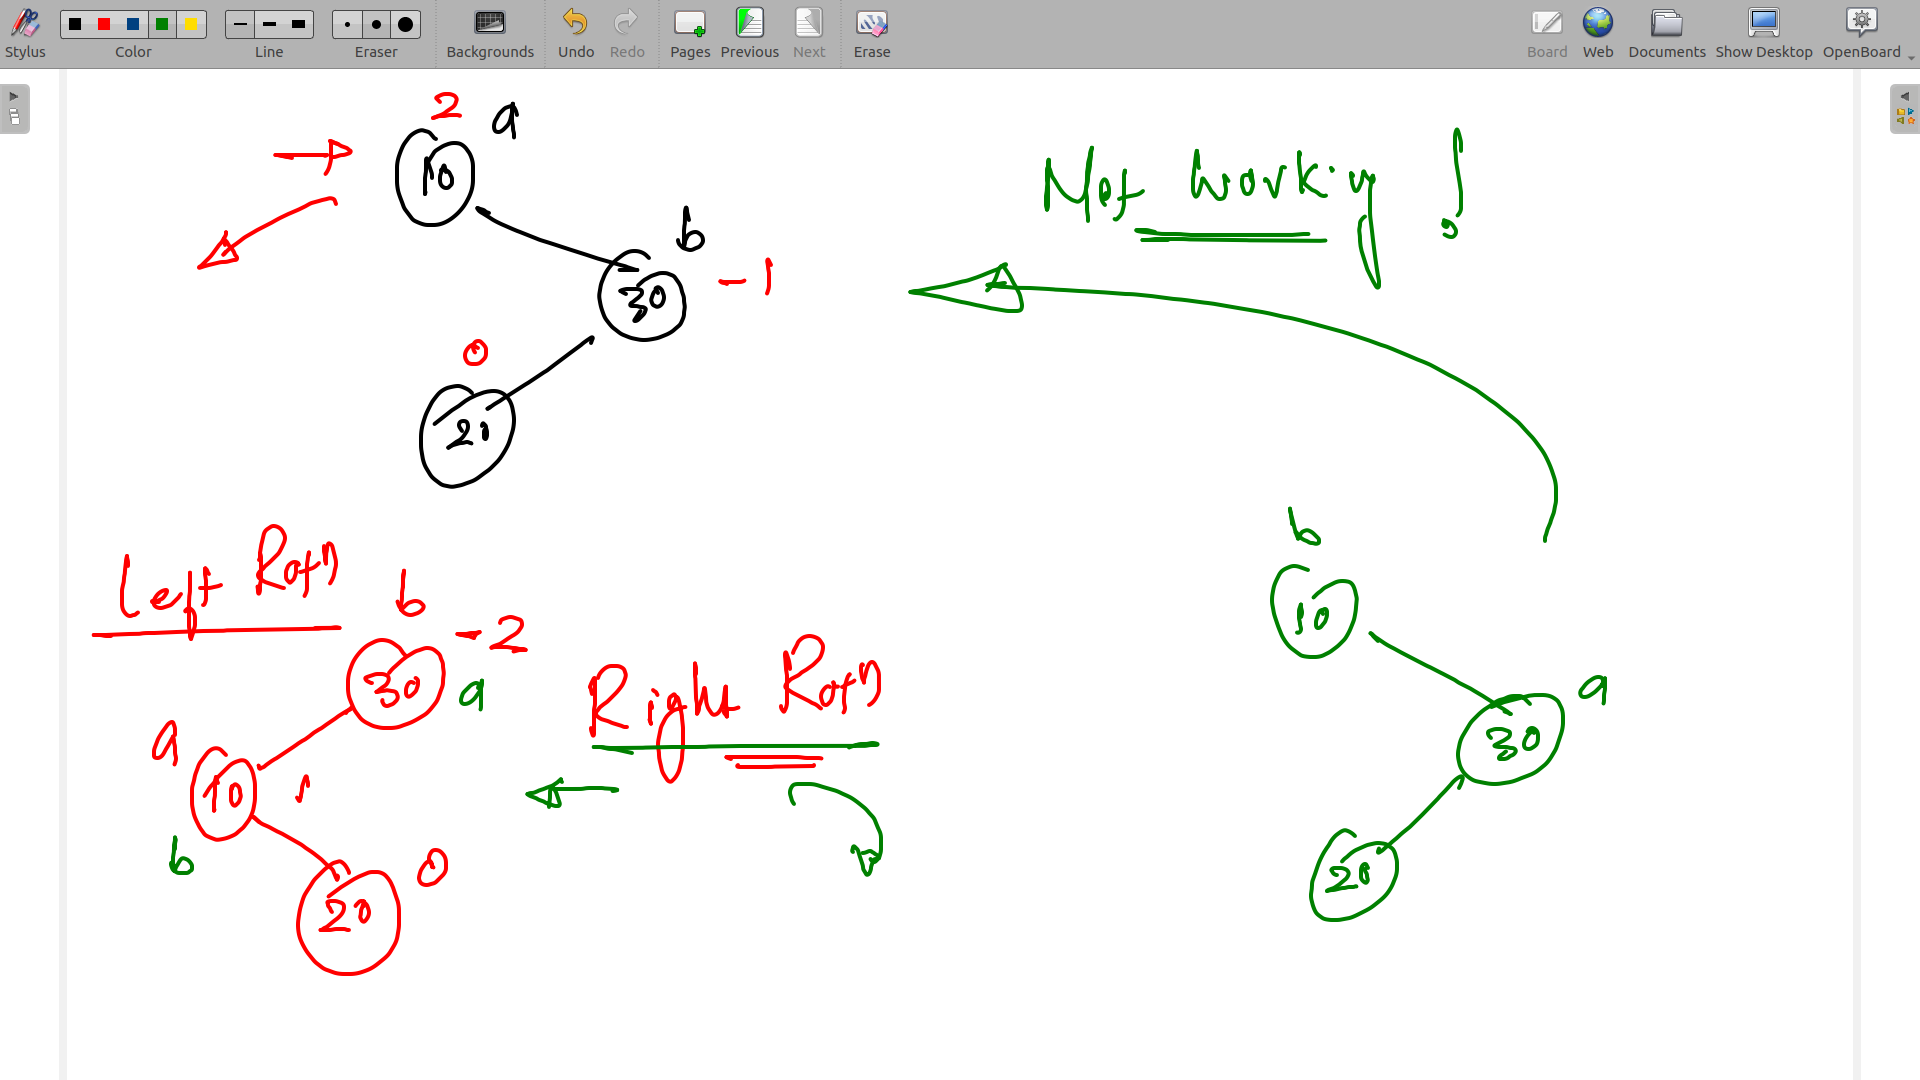 Stylus
Color
Line
Eraser
Backgrounds
Undo
Redo
Pages
Previous
Next
Erase
Board
Web
Documents
Show Desktop
OpenBoard
2 a
10
b
30 -1
0
20
Not Working !
Left Rotn
b
-2
30 a
a
10 1
b
0
20
Right Rotn
b
10
a
30
20